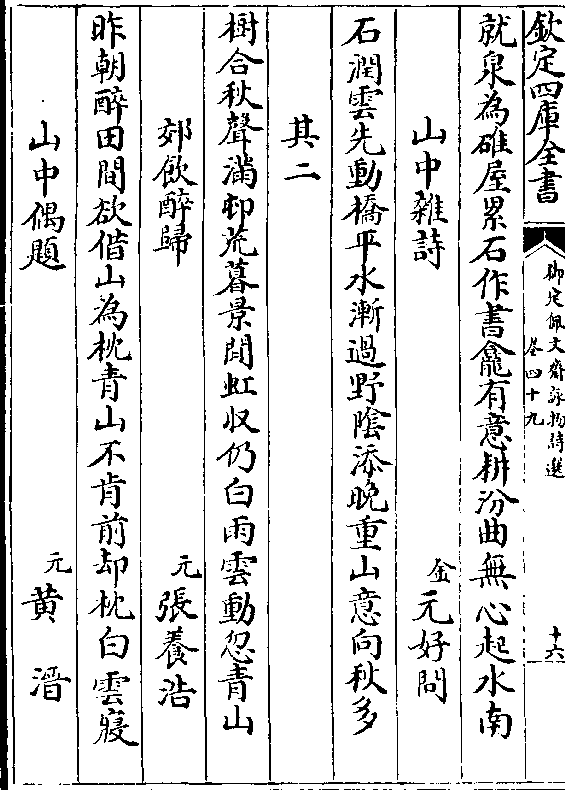 欽定四庫全書
御定佩文齋詠物詩選
卷四十九
十六
就泉為碓屋累石作書龕有意耕汾曲無心起水南
山中雜詩
金元好問
石潤雲先動橋平水漸過野陰添晚重山意向秋多
其二
樹合秋聲滿邨荒暮景閒虹収仍白雨雲動忽青山
郊飲醉歸
元張養浩
昨朝醉田間欲偕山為枕青山不肯前却枕白雲寢
山中偶題
元黄溍